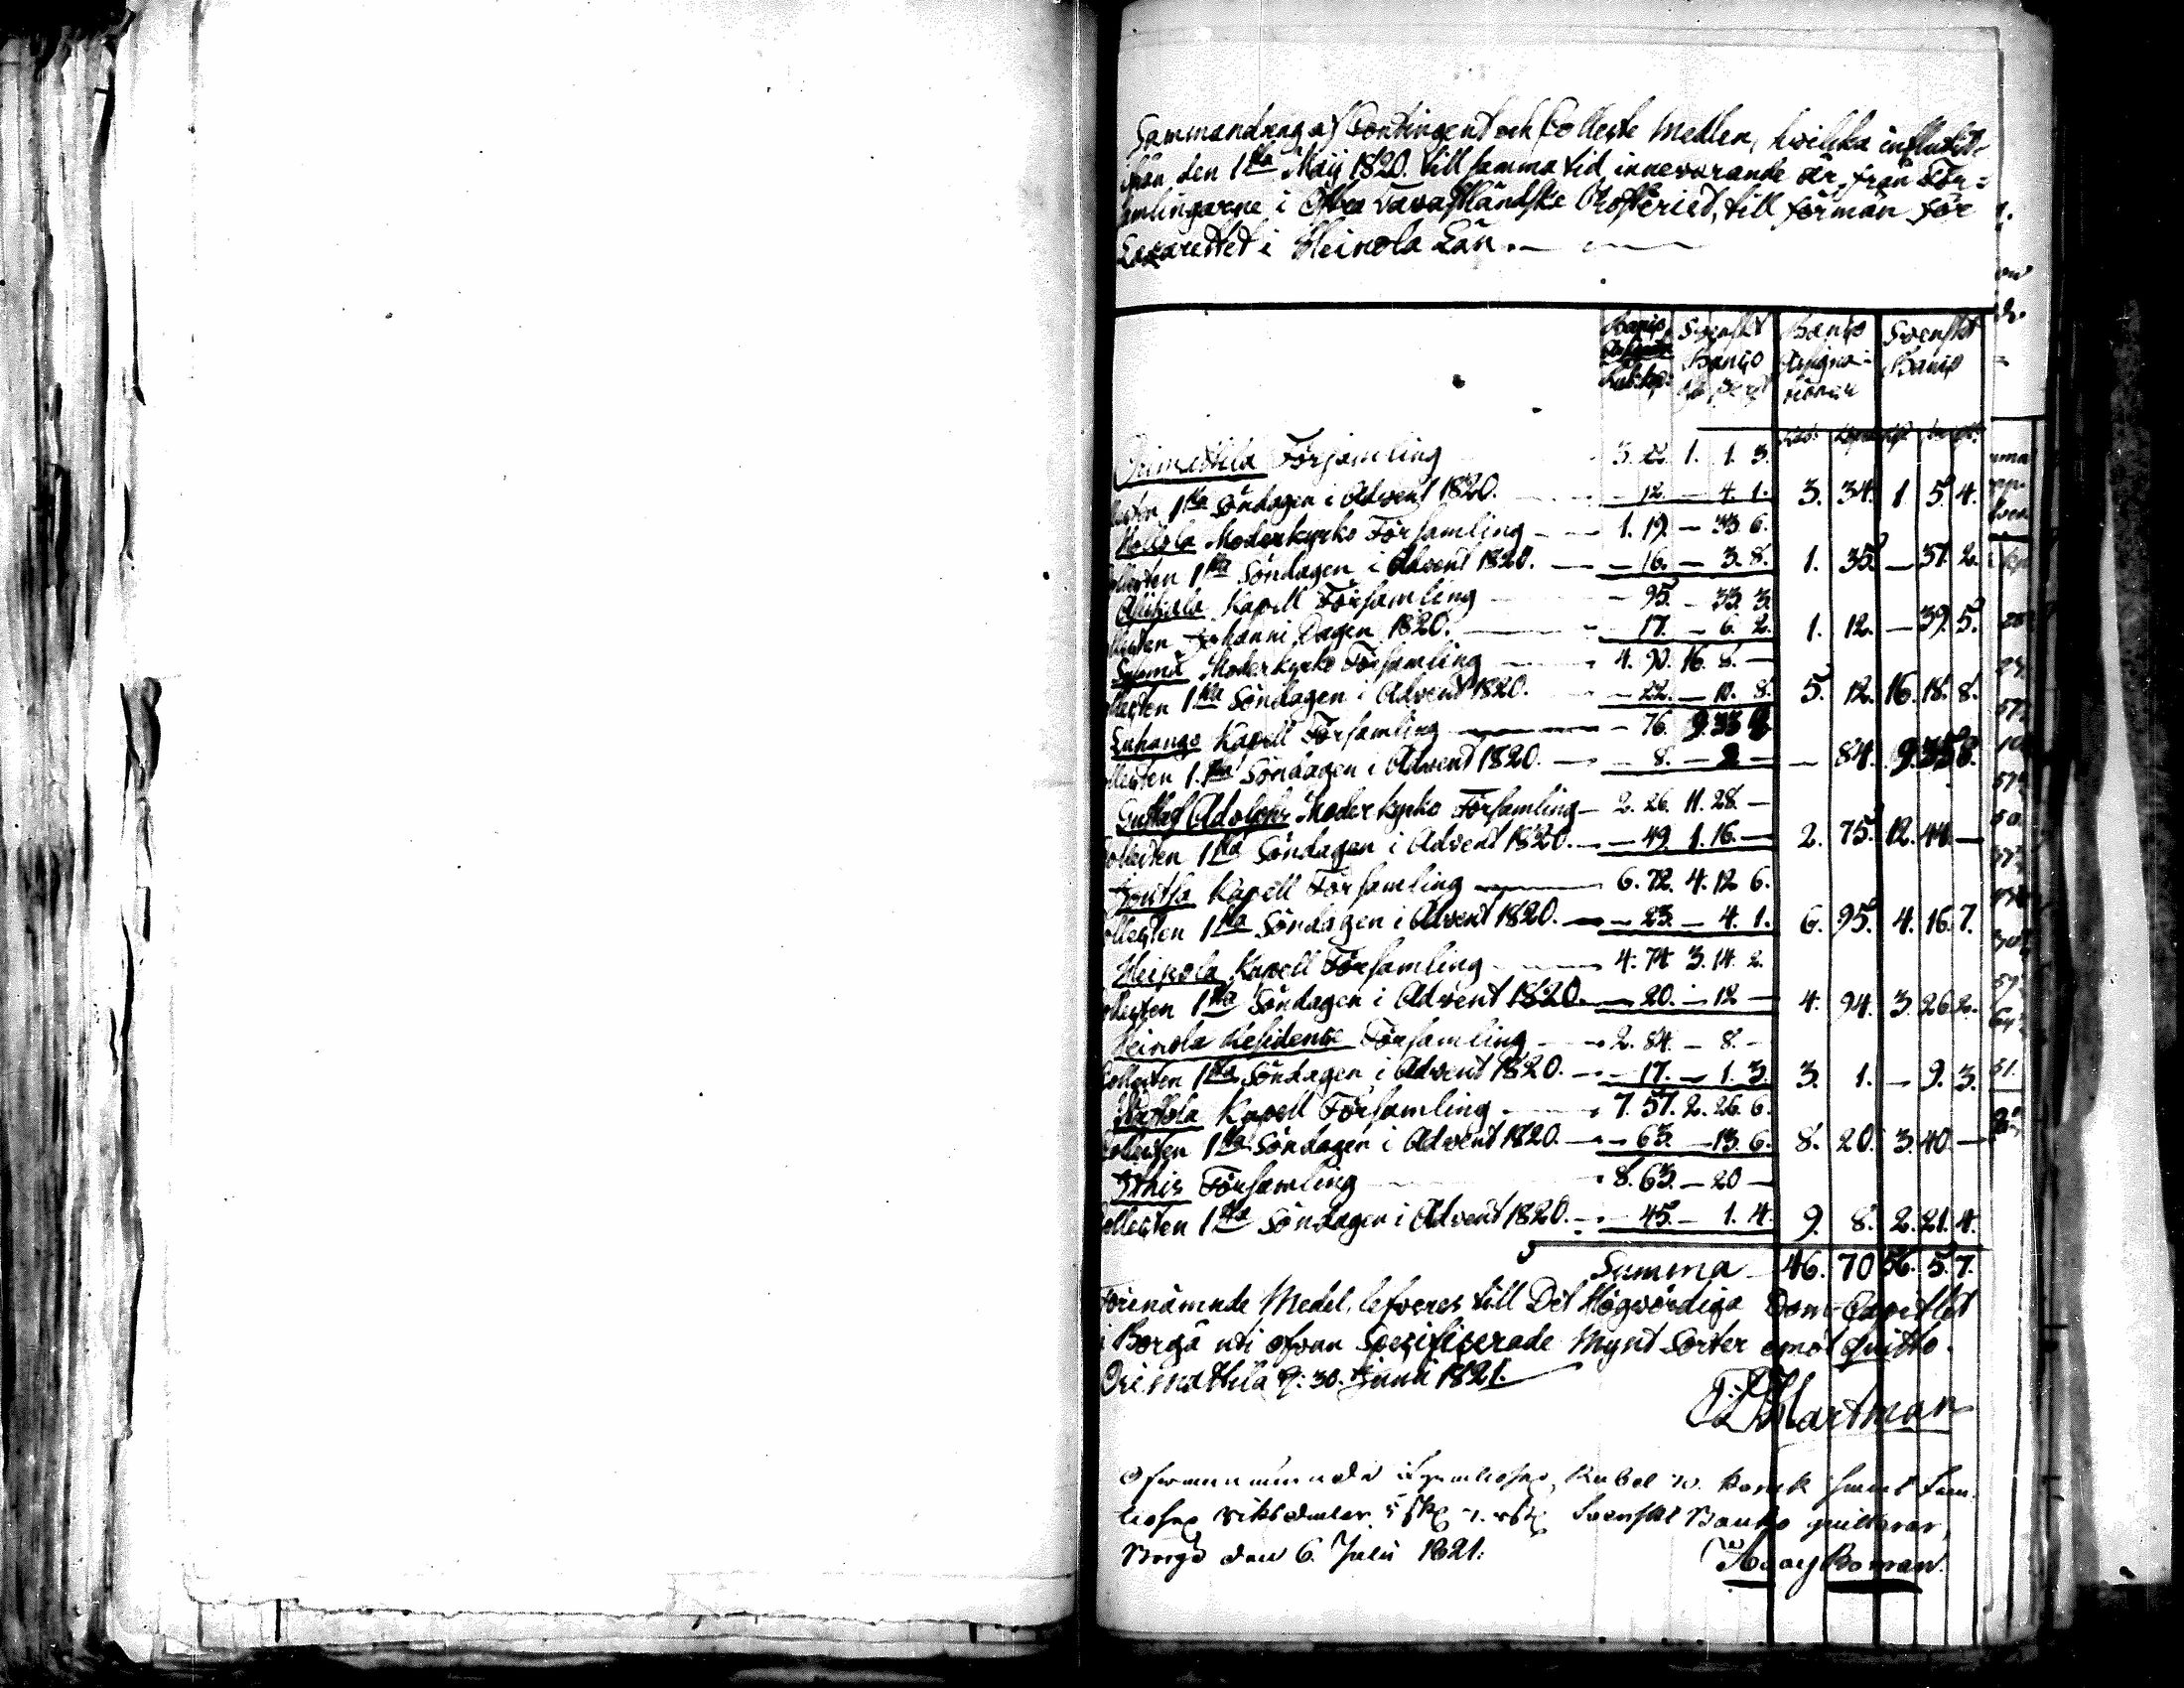 Sammandrag af Contingent och Collecte Medlen, hvilka influtit
ifrån den 1sta Maij 1820. till samma tid innevarande år, från För=
samlingarne i Öfvre Tavastländske Prosteriet, till förmån för
Lazarettet i Heinola Län.
Banco Svenskt Banco Svenskt
Banco Assigna= Banco
Rub: kop: tioner
Orimattila Församling 3. 22. 1. 1. 3.
Collecten 1sta Söndagen i Advent 1820. — 12. — 4. 1. 3. 34. 1 5. 4.
Hollola Moderkyrko Församling — 1. 19. — 33. 6.
Collecten 1sta Söndagen i Advent 1820. — 16. — 3. 8. 1. 35. — 37. 2.
Kapell Församling — 95. — 33. 3.
Collecten Johanni Dagen 1820. — 17. — 6. 2. 1. 12. — 39. 5.
Sysmä Moderkyrko Församling — 4. 90. 16. 8. —
Collecten 1sta Söndagen i Advent 1820. — 22. — 10. 8. 5. 12. 16. 18. 8.
Luhango Kapell Församling — 76. 9. 33
Collecten 1sta Söndagen i Advent 1820. — 8. — 2. — — 84. 9. 35. 8.
Gustaf Adolphs Moderkyrko Församling — 2. 26. 11. 28. —
Collecten 1sta Söndagen i Advent 1820. — 49. 1. 16. — 2. 75. 12. 44. —
Joutsa Kapell Församling — 6. 72. 4. 12. 6.
Collecten 1sta Söndagen i Advent 1820. — 23. — 4. 1. 6. 95. 4. 16. 7.
Heinola Kapell Församling — 4. 74. 3. 14. 2.
Collecten 1sta Söndagen i Advent 1820. — 20. — 12 — 4. 94. 3. 26. 2.
Heinola Residence Församling — 2. 84. — 8. —
Collecten 1sta Söndagen i Advent 1820. — 17. — 1. 3. 3. 1. — 9. 3.
Kapell Församling — 7. 57. 2. 26. 6.
Collecten 1sta Söndagen i Advent 1820. — 63. — 13. 6. 8. 20. 3. 40. —
Ithis Församling 8. 63. — 20 —
Collecten 1sta Söndagen i Advent 1820. — 45. — 1. 4. 9. 8. 2. 21. 4.
Summa 46. 70 56. 5. 7.
Förenämnde Medel, lefveres till Det Högvördiga Dom-Capitlet
i Borgå uti ofvan Specificerade Mynt Sorter emot quitto.
Orimattila d: 30. Junii 1821.
Hartman
Ofvannämnde Rubel 70. Kopek samt Fem
tiosex riksdaler 5 sk 7. rst Svenskt Banko quitterar,
Borgå den 6. Julii 1821.
Boman.